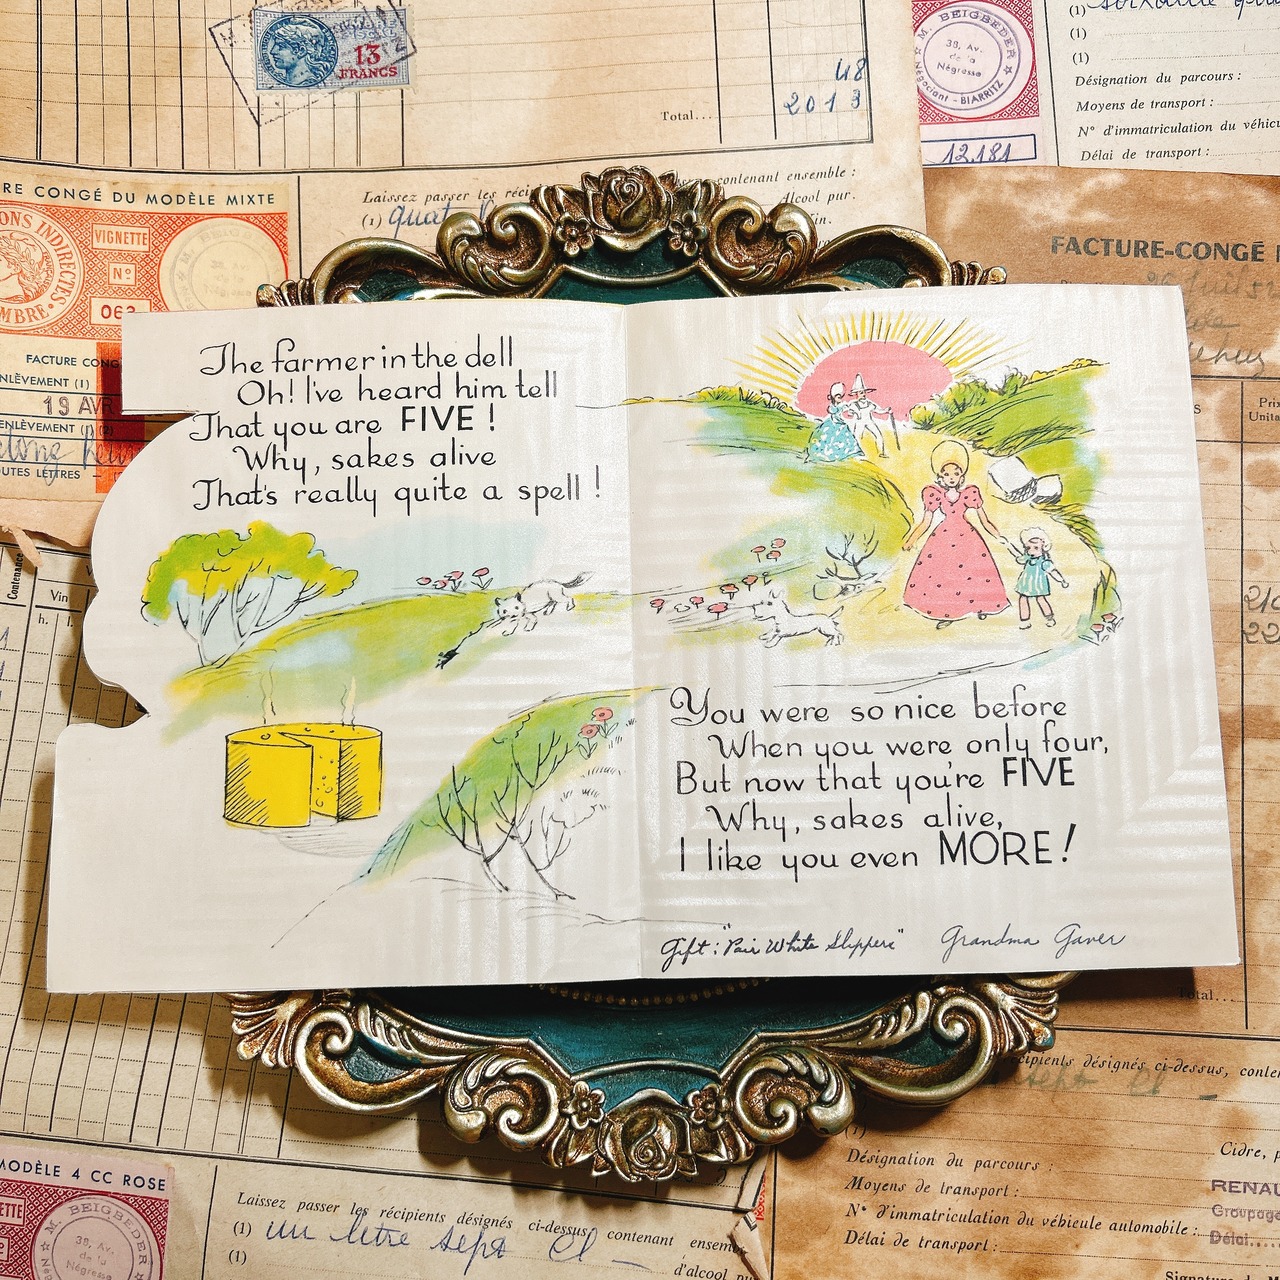 13
FRANCS
48
Total...
2013
M. BEIGBEDER
38, Av.
de la
Négresse
Négociant - BIARRITZ
12.181
(1)
(1)
(1)
Désignation du parcours :
Moyens de transport :
N° d'immatriculation du véhicu
Délai de transport :
RE CONGÉ DU MODÈLE MIXTE
VIGNETTE
N°
063
ONS INDIRECTES
MBRE
Laissez passer les réci
contenant ensemble :
Alcool pur.
(1)
FACTURE-CONGÉ
FACTURE CONG
NLÈVEMENT (1)
19 AVR
ENLÈVEMENT (1) (2)
OUTES LETTRES -
The farmer in the dell
Oh! I've heard him tell
That you are FIVE !
Why, sakes alive
That's really quite a spell !
You were so nice before
When you were only four,
But now that you're FIVE
Why, sakes alive,
I like you even MORE!
Gift: "Pair White Slippers" Grandma Gaver
Contenance
Vin
h. l.
Prix
Unita
Total...
cipients désignés ci-dessus, conten
(1)
Cidre, p
Désignation du parcours :
Moyens de transport :
N° d'immatriculation du véhicule automobile :
Délai de transport :
RENAU
Groupage
Délai
MODÈLE 4 CC ROSE
M. BEIGBEDER
38, Av.
de la
Négresse
Laissez passer les récipients désignés ci-dessus, contenant ensem
(1) un litre sept cl
(1)
d'alcool pu